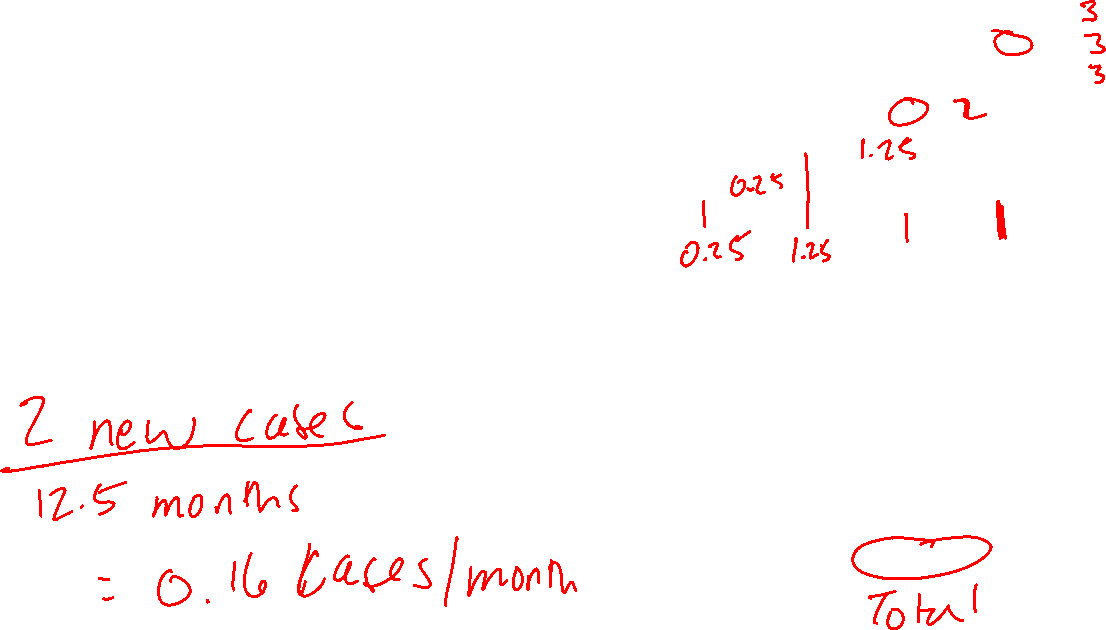 3
3
3
2
1.25
0.25
0.25 1.25
2 new cases
12.5 months
= 0.16 cases/month
Total